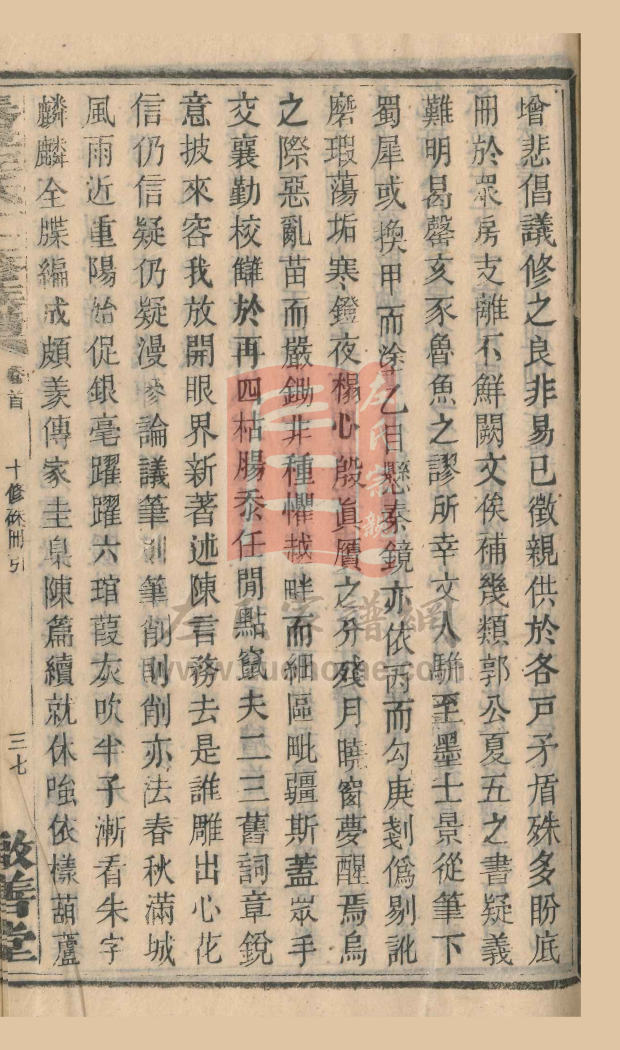 增悲倡議修之良非易已徵親供於各戸矛盾殊多盼底
冊於眾房支離不鮮闕文俟補幾類郭公夏五之書疑義
難明曷罄亥豕魯魚之謬所幸文人駢至墨士景從筆下
蜀犀或換甲而塗乙目懸秦鏡亦依丙而勾庚剗僞剔訛
磨瑕蕩垢寒鐙夜榻心殷眞贋之分殘月曉窗夢醒焉烏
之際惡亂苗而嚴鋤非種懼越畔而細區毗疆斯蓋眾手
交襄勤校讎於再四枯腸忝任閒點竄夫二三舊詞章銳
意披來容我放開眼界新著述陳言務去是誰雕出心花
信仍信疑仍疑漫參論議筆則筆削則削亦法春秋滿城
風雨近重陽始促銀毫躍躍六琯葭灰吹半子漸看朱字
麟麟全牒編成頗羡傳家圭臬陳篇續就休嗤依樣葫蘆
卷首
十修硃冊引
三七
敬善堂
左氏宗親
左氏家譜網